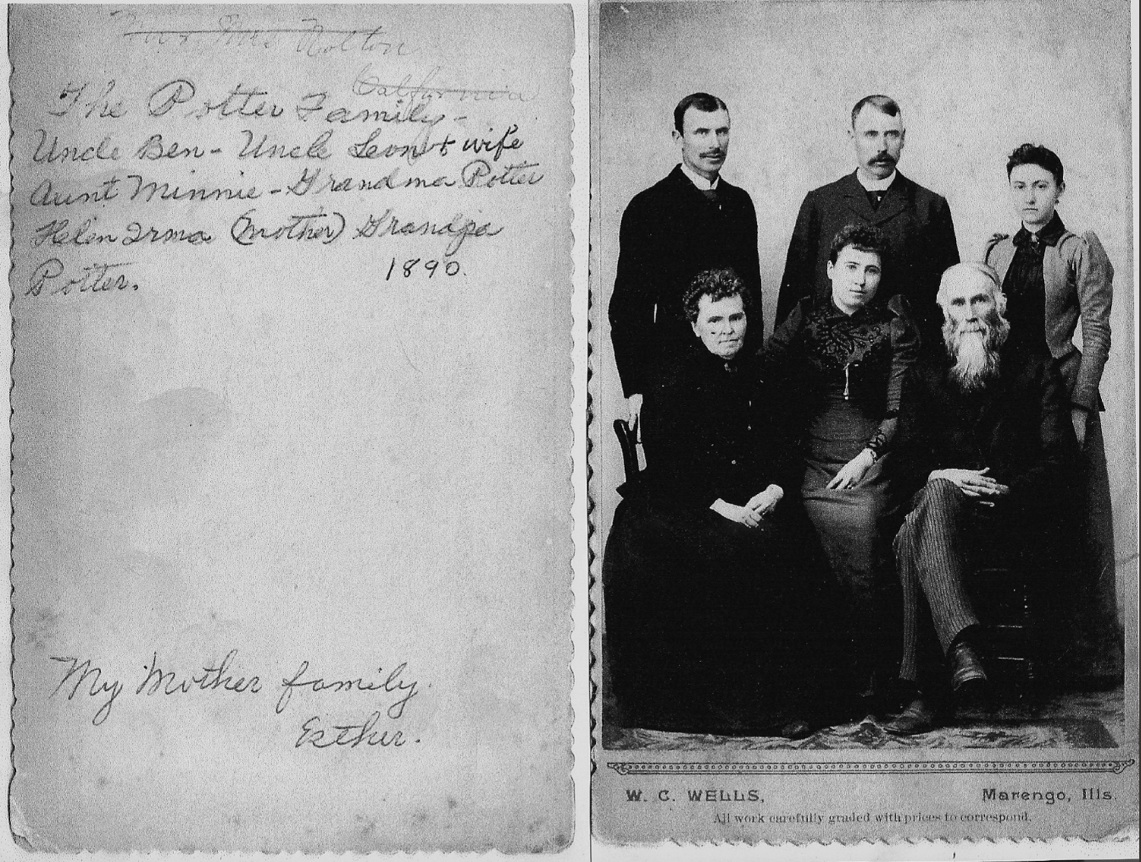 Nolton
California
The Potter Family-
Uncle Ben- Uncle Leon & wife
Aunt Minnie - Grandma Potter
Helen Irma (mother) Grandpa
Potter. 1890.
My Mother family.
Esther.
W. C. WELLS,
Marengo, Ills.
All work carefully graded with prices to correspond.